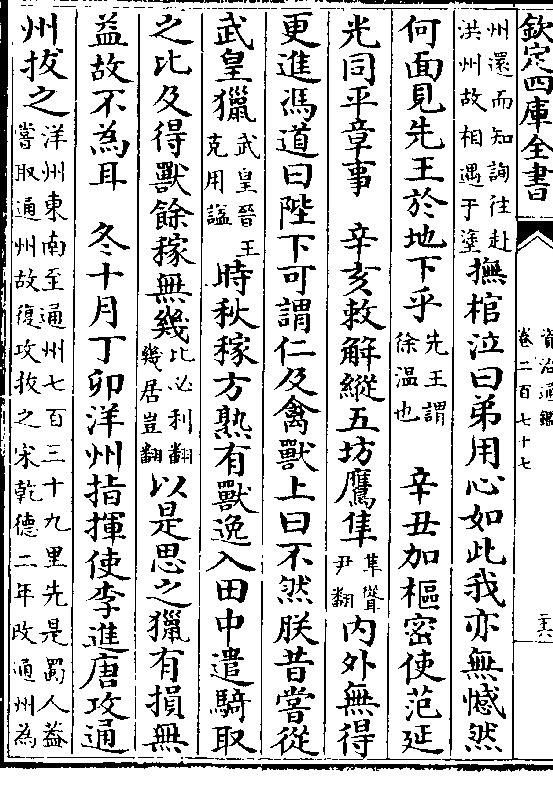 欽定四庫全書
資治通鑑
卷二百七十七
州還而知詢往赴
洪州故相遇于塗
撫棺泣曰弟用心如此我亦無憾然
何面見先王於地下乎
先王謂
徐温也
辛丑加樞密使范延
光同平章事 辛亥敕解縱五坊鷹隼
隼聳
尹翻
内外無得
更進馮道曰陛下可謂仁及禽獸上曰不然朕昔嘗從
武皇獵
武皇晉王
克用諡
時秋稼方熟有獸逸入田中遣騎取
之比及得獸餘稼無幾
比必利翻
幾居豈翻
以是思之獵有損無
益故不為耳 冬十月丁卯洋州指揮使李進唐攻通
州拔之
洋州東南至通州七百三十九里先是蜀人葢
嘗取通州故復攻拔之宋乾德二年改通州為